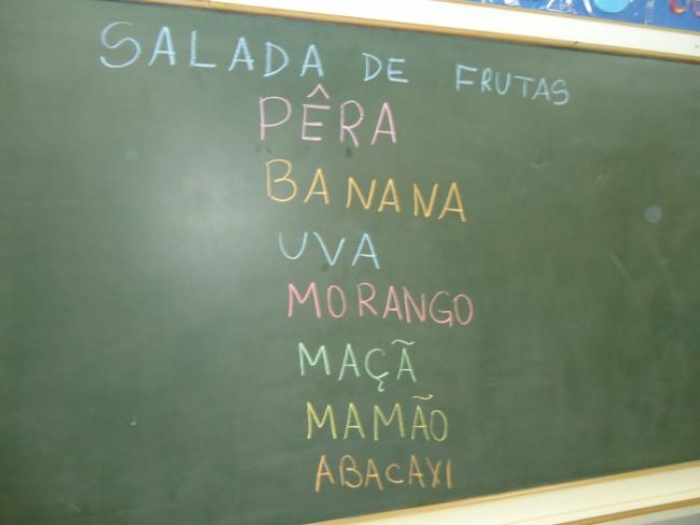 SALADA DE FRUTAS
PÊRA
BANANA
UVA
MORANGO
MAÇÃ
MAMÃO
ABACAXI